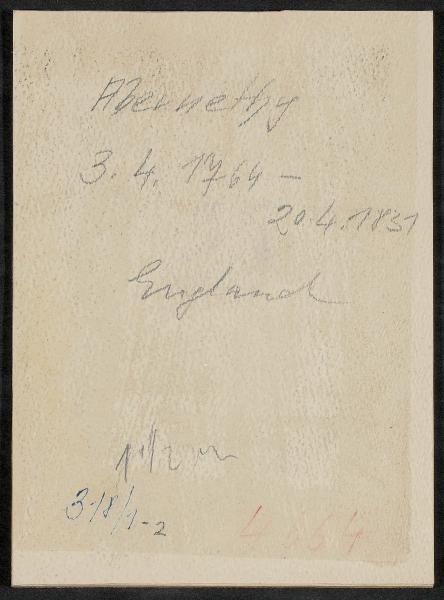 Abernethy
3. 4. 1764 –
20.4.1831
England
318/1-2
4864